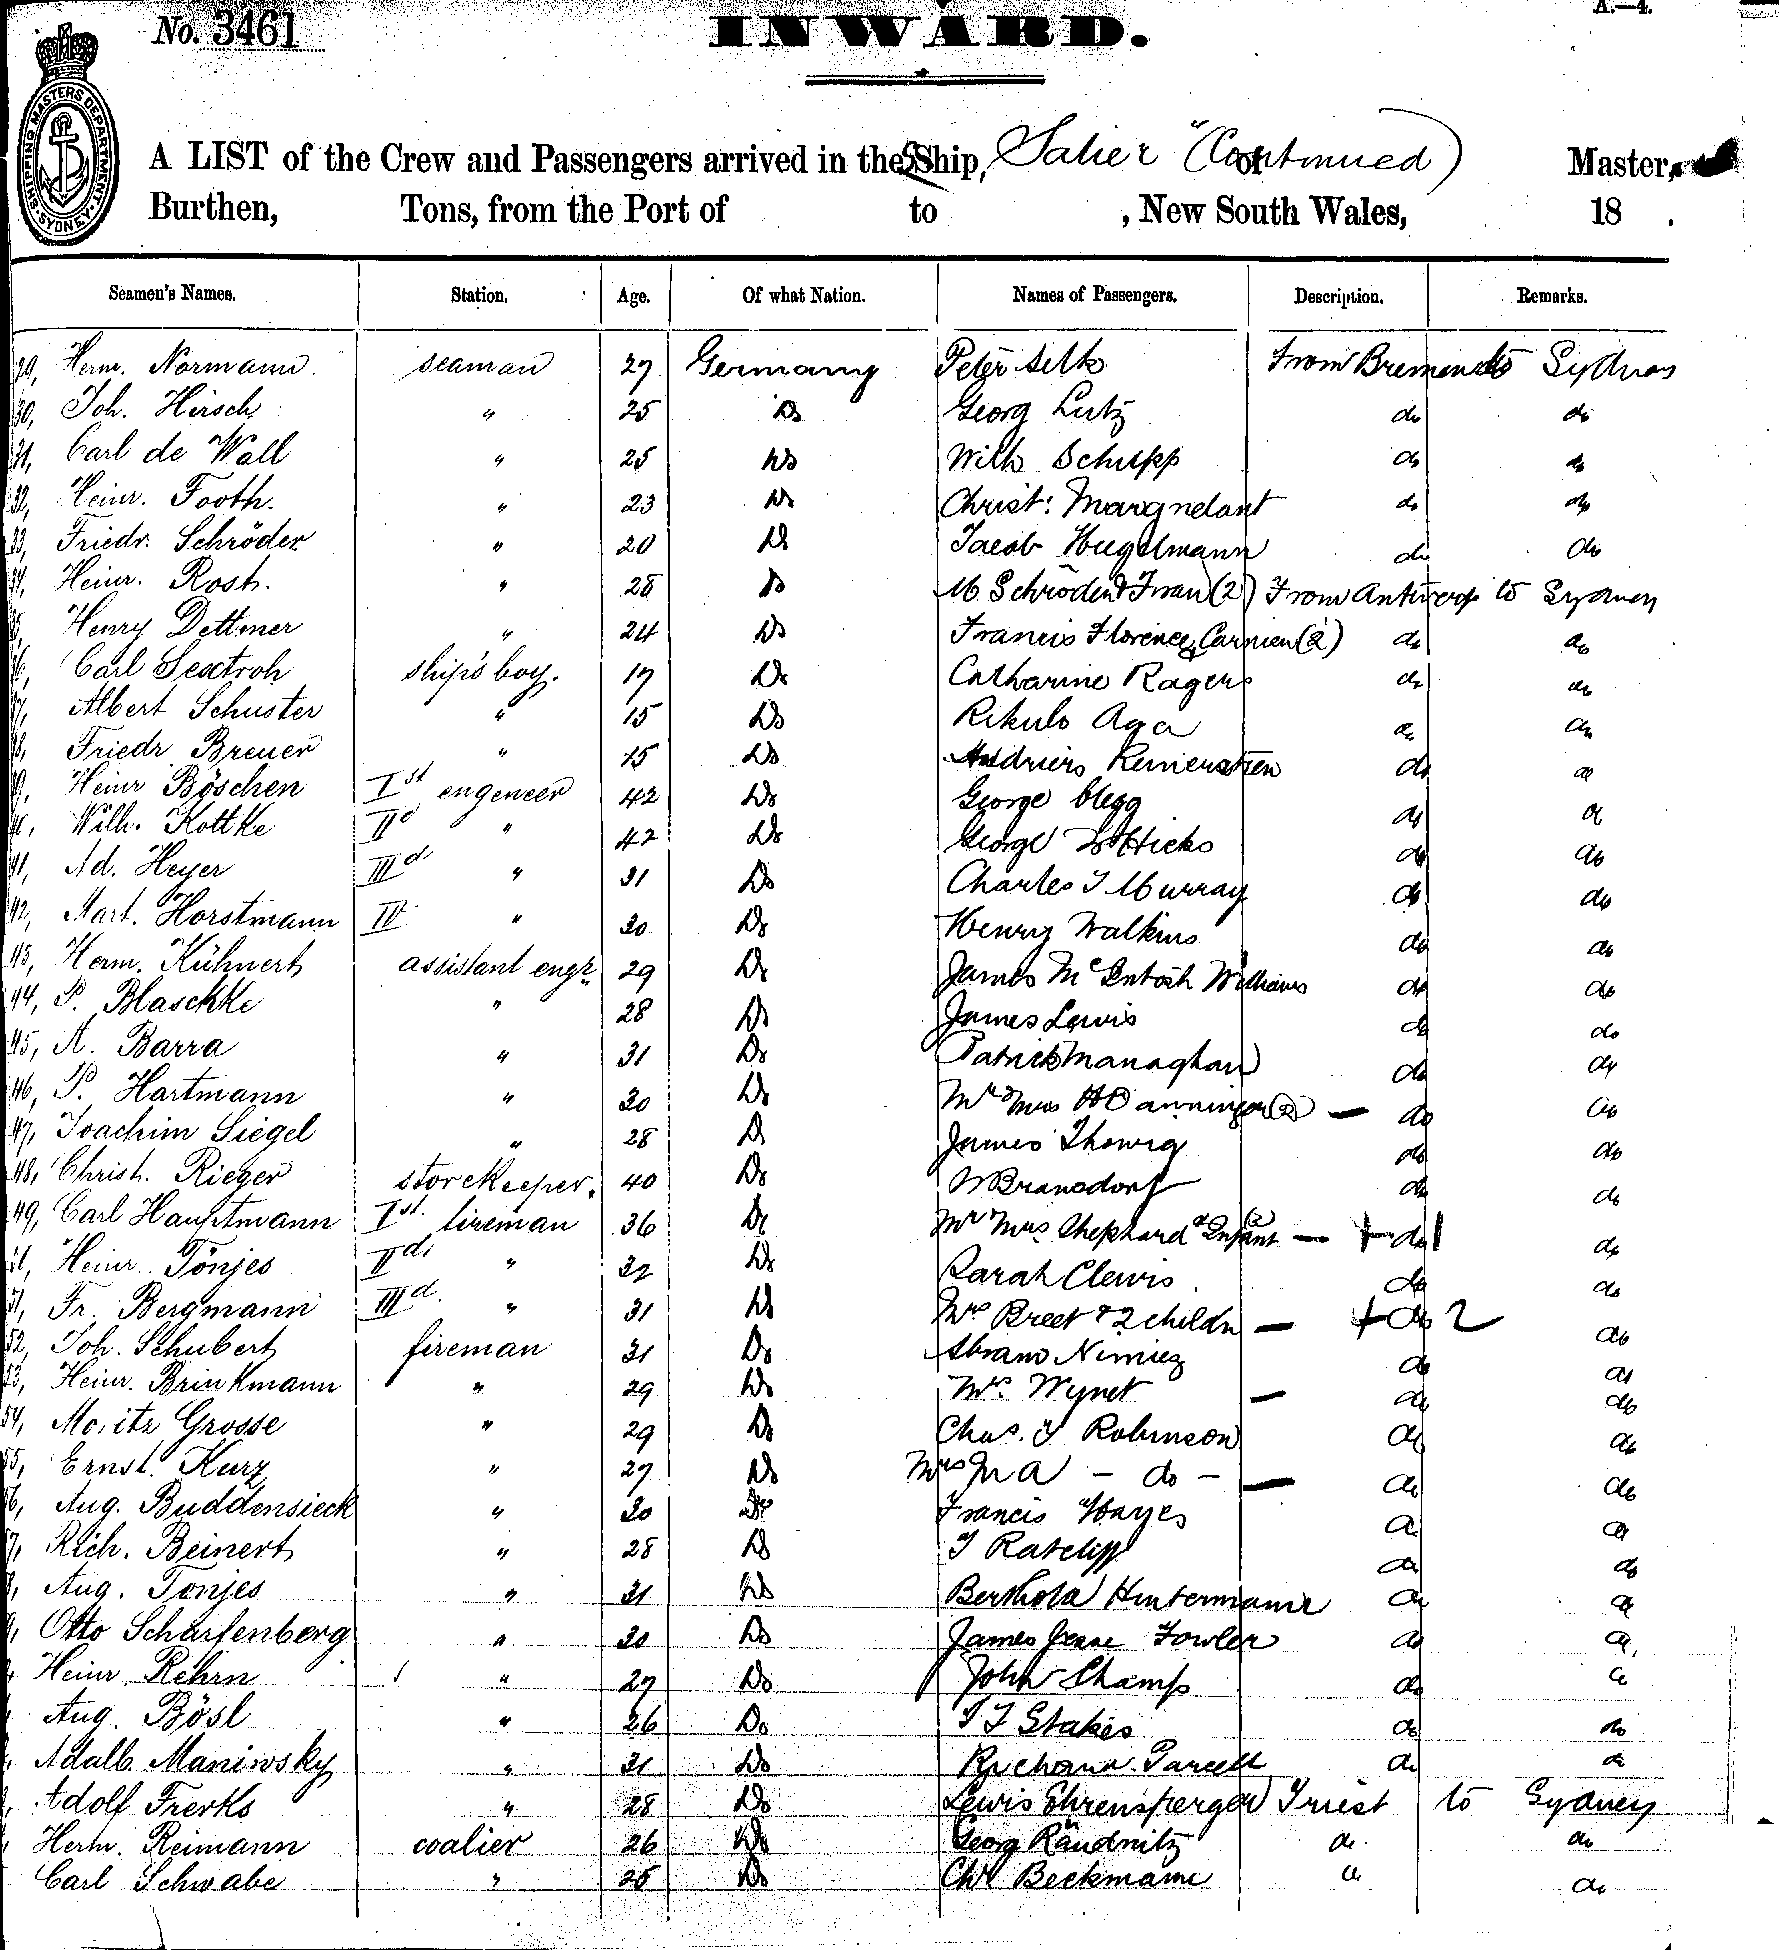 No. 3461
INWARD.
A.—4.
SHIPPING MASTERS DEPARTMENT. SYDNEY.
A LIST of the Crew and Passengers arrived in the SShip, "Salier" (Continued) of Master,
Burthen, Tons, from the Port of to , New South Wales, 18 .
Seamen's Names. Station. Age. Of what Nation. Names of Passengers. Description. Remarks.
29, Herm. Normann seaman 27 Germany Peter Selk From Bremen to Sydney
30, Joh. Hirsch " 25 Do Georg Lutz do do
31, Carl de Wall " 25 Do Wilh Schupp do do
32, Heinr. Footh. " 23 Do Christ: Margnelant do do
33, Friedr. Schröder " 20 Do Jacob Hugelmann do do
34, Heinr. Rosh. " 28 Do M Schröder & Frau (2) From Antwerp to Sydney
35, Henry Dettmer " 24 Do Francis Florence Carnien (2) do do
36, Carl Sextroh ship's boy. 17 Do Catharine Ragers do do
37, Albert Schuster " 15 Do Rikulo Aga do do
38, Friedr Breuer " 15 Do Andriers do do
39, Heinr Böschen Ist engeneer 42 Do George Clegg do do
40, Wilh. Kottke IId " 42 Do George Hicks do do
41, Ad. Heyer IIId. " 31 Do Charles J Murray do do
42, Mart. Horstmann IV " 30 Do Henry Walkins do do
43, Herm. Kühnert assistant engr. 29 Do James McIntosh Williams do do
44, P. Blaschke " 28 Do James Lewis do do
45, A. Barra " 31 Do Patrick Managhan do do
46, P. Hartmann " 30 Do Mr Mrs (2) — do do
47, Joachim Siegel " 28 Do James Thowig do do
48, Christ. Rieger storekeeper. 40 Do W Bransdorf do do
49, Carl Hauptmann Ist. fireman 36 Do Mr Mrs Shephard & Infant (2) — + do 1 do
Heinr. Tönjes IId. " 32 Do Sarah Clewis do do
51, Fr. Bergmann IIId. " 31 Do Mrs Breet & 2 childn — + do 2 do
52, Joh. Schubert fireman 31 Do Abram Nimiez do do
53, Heinr. Brinkmann " 29 Do Mrs. Wynet — do do
54, Moritz Grosse " 29 Do Chas. J Robinson do do
55, Ernst. Kurz " 27 Do Mrs M A – do – — do do
56, Aug. Buddensieck " 30 Do Francis Hayes do do
57, Rich. Beinert " 28 Do J Ratcliff do do
Aug. Tönjes " 31 Do Berthold Hintermann do do
Otto Scharfenberg " 30 Do James Jesse Fowler do do
Heinr. Rehrn " 27 Do John Champ do do
Aug. Bösl " 26 Do J J Stakes do do
Adalb. Maniwsky " 31 Do Richard Parcell do do
Adolf Frerks " 28 Do Lewis Ehrensperger Triest to Sydney
Herm. Reimann coalier 26 Do Georg Raudnitz do do
Carl Schwabe " 25 Do Chr Beckmann do do